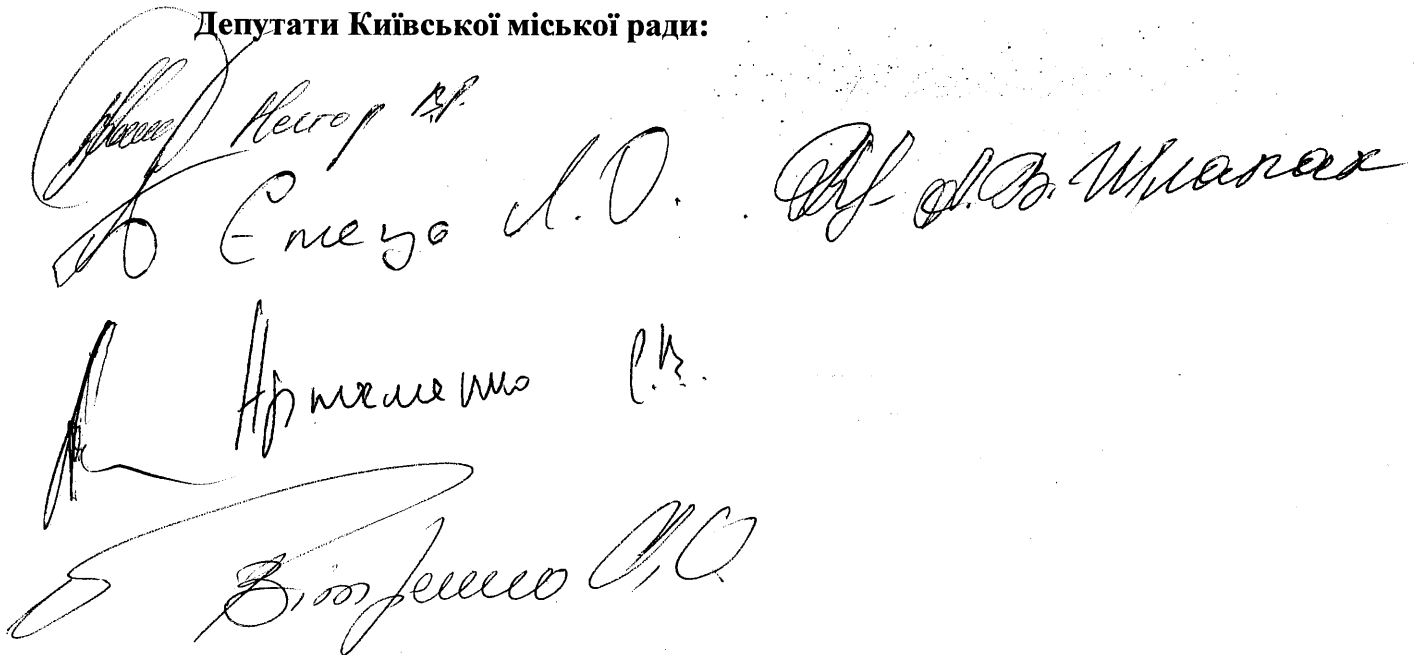 Депутати Київської міської ради:
Нестор В.Р.
Ємець Л.О. А.В. Шлапак
Артеменко С.В.
Вітренко Ю.О.